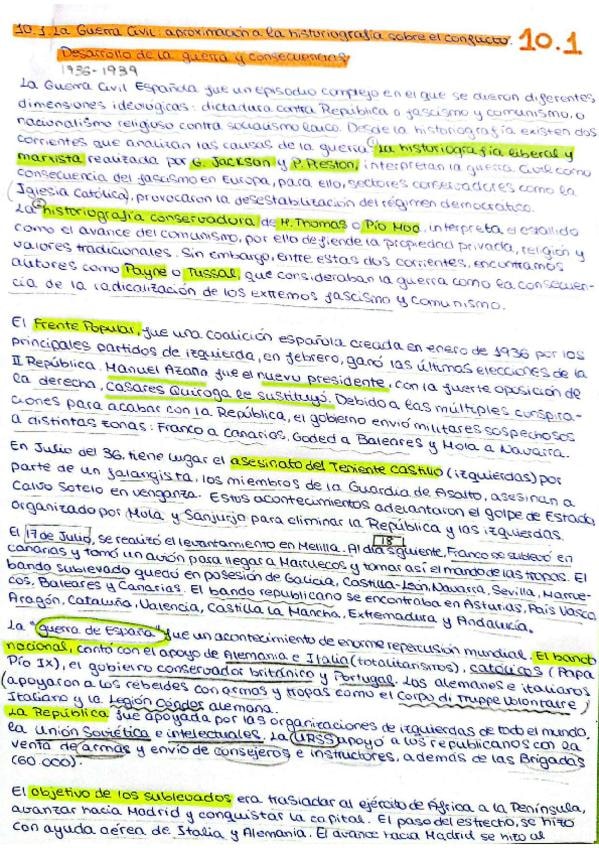 10.1. La Guerra Civil: aproximación a la historiografía sobre el conflicto. 10.1
Desarrollo de la guerra y consecuencias
1936-1939
La Guerra Civil Española fue un episodio complejo en el que se dieron diferentes
dimensiones ideológicas: dictadura contra República o fascismo y comunismo, o
nacionalismo religioso contra socialismo laico. Desde la historiografía existen dos
corrientes que analizan las causas de la guerra. 1 La historiografía liberal y
marxista realizada por G. Jackson y P. Preston, interpretan la guerra Civil como
consecuencia del fascismo en Europa, para ello, sectores conservadores como la
(Iglesia Católica), provocaron la desestabilización del régimen democrático.
La 2 historiografía conservadora de H. Thomas o Pío Moa, interpreta el estallido
como el avance del comunismo, por ello defiende la propiedad privada, religión y
valores tradicionales. Sin embargo, entre estas dos corrientes, encontramos
autores como Payne o Tussal, que consideraban la guerra como la consecuen-
cia de la radicalización de los extremos fascismo y comunismo.
El Frente Popular, fue una coalición española creada en enero de 1936 por los
principales partidos de izquierda, en febrero, ganó las últimas elecciones de la
II República. Manuel Azaña fue el nuevo presidente, con la fuerte oposición de
la derecha, Casares Quiroga le sustituyó. Debido a las múltiples conspira-
ciones para acabar con la República, el gobierno envió militares sospechosos
a distintas zonas: Franco a Canarias, Goded a Baleares y Mola a Navarra.
En Julio del 36, tiene lugar el asesinato del Teniente Castillo (izquierdas) por
parte de un falangista, los miembros de la Guardia de Asalto, asesinan a
Calvo Sotelo en venganza. Estos acontecimientos adelantaron el golpe de Estado,
organizado por Mola y Sanjurjo para eliminar la República y las izquierdas.
El 17 de Julio, se realizó el levantamiento en Melilla. Al día 18 siguiente, Franco se sublevó en
canarias y tomó un avión para llegar a Marruecos y tomar así el mando de las tropas. El
bando sublevado quedó en posesión de Galicia, Castilla-León, Navarra, Sevilla, Marrue-
cos, Baleares y Canarias. El bando republicano se encontraba en Asturias, País Vasco,
Aragón, Cataluña, Valencia, Castilla La Mancha, Extremadura y Andalucía.
La "guerra de España" fue un acontecimiento de enorme repercusión mundial. El bando
nacional, contó con el apoyo de Alemania e Italia (totalitarismos), católicos (Papa
Pío IX), el gobierno conservador británico y Portugal. Los alemanes e italianos
(apoyaron a los rebeldes con armas y tropas como el Corpo di Truppe Volontaire)
Italiano y la Legión Cóndor alemana.
La República fue apoyada por las organizaciones de izquierdas de todo el mundo,
la Unión Soviética e intelectuales. La URSS apoyó a los republicanos con la
venta de armas y envío de consejeros e instructores, además de las Brigadas
(60.000).
El objetivo de los sublevados era trasladar al ejército de África a la Península,
avanzar hacia Madrid y conquistar la capital. El paso del estrecho, se hizo
con ayuda aérea de Italia y Alemania. El avance hacia Madrid se hizo al